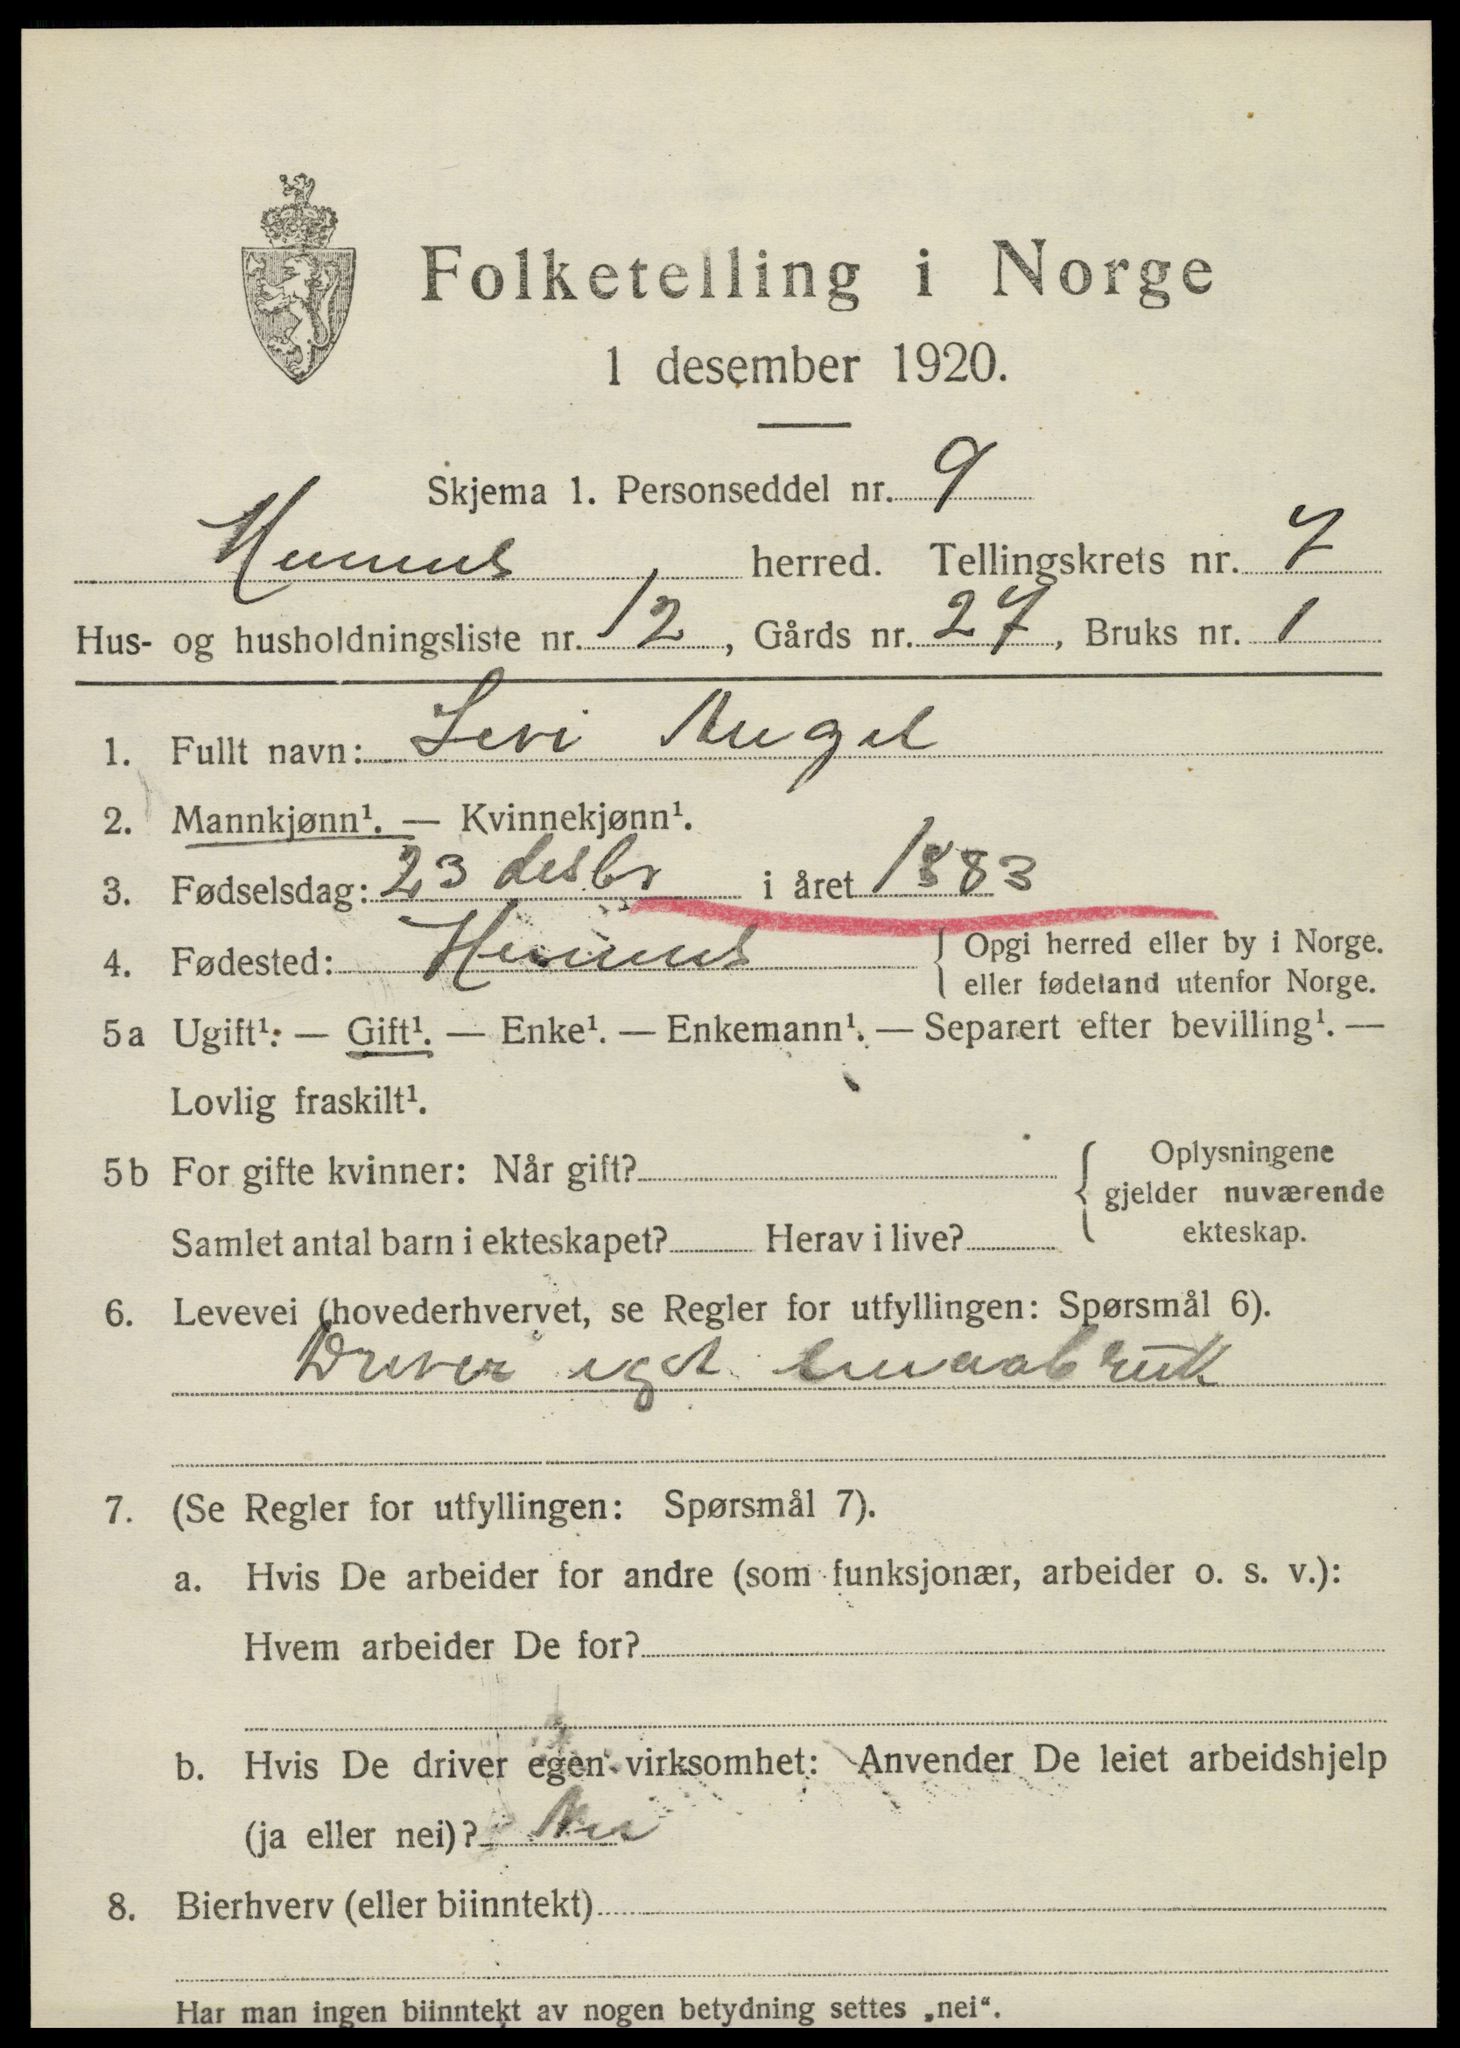 Folketelling i Norge
1 desember 1920.
Skjema 1. Personseddel nr. 9
Hemnes herred. Tellingskrets nr. 7
Hus- og husholdningsliste nr. 12, Gårds nr. 27, Bruks nr. 1
1. Fullt navn: Levi Angel
2. Mannkjønn¹. — Kvinnekjønn¹.
3. Fødselsdag: 23 desbr i året 1883
4. Fødested: Hemnes { Opgi herred eller by i Norge.
eller fødeland utenfor Norge.
5a Ugift¹: — Gift¹. — Enke¹. — Enkemann¹. — Separert efter bevilling¹. —
Lovlig fraskilt¹.
5b For gifte kvinner: Når gift? { Oplysningene
gjelder nuværende
ekteskap.
Samlet antal barn i ekteskapet? Herav i live?
6. Levevei (hovederhvervet, se Regler for utfyllingen: Spørsmål 6).
Driver eget smaabruk
7. (Se Regler for utfyllingen: Spørsmål 7).
a. Hvis De arbeider for andre (som funksjonær, arbeider o. s. v.):
Hvem arbeider De for?
b. Hvis De driver egen virksomhet: Anvender De leiet arbeidshjelp
(ja eller nei)? Nei
8. Bierhverv (eller biinntekt)
Har man ingen biinntekt av nogen betydning settes „nei“.